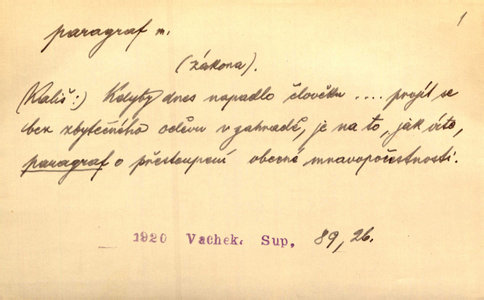 paragraf m.
1
(zákona).
(Kališ:) Kdyby dnes napadlo člověku .... projít se
bez zbytečného oděvu v zahradě, je na to, jak víte,
paragraf o přestoupení obecné mravopočestnosti.
1920 Vachek. Sup, 89, 26.